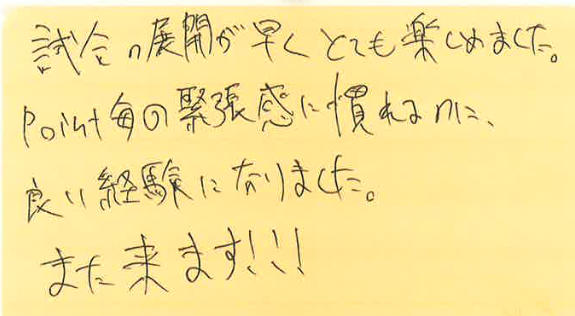 試合の展開が早くとても楽しめました。
Point毎の緊張感に慣れるのに、
良い経験になりました。
また来ます!!!